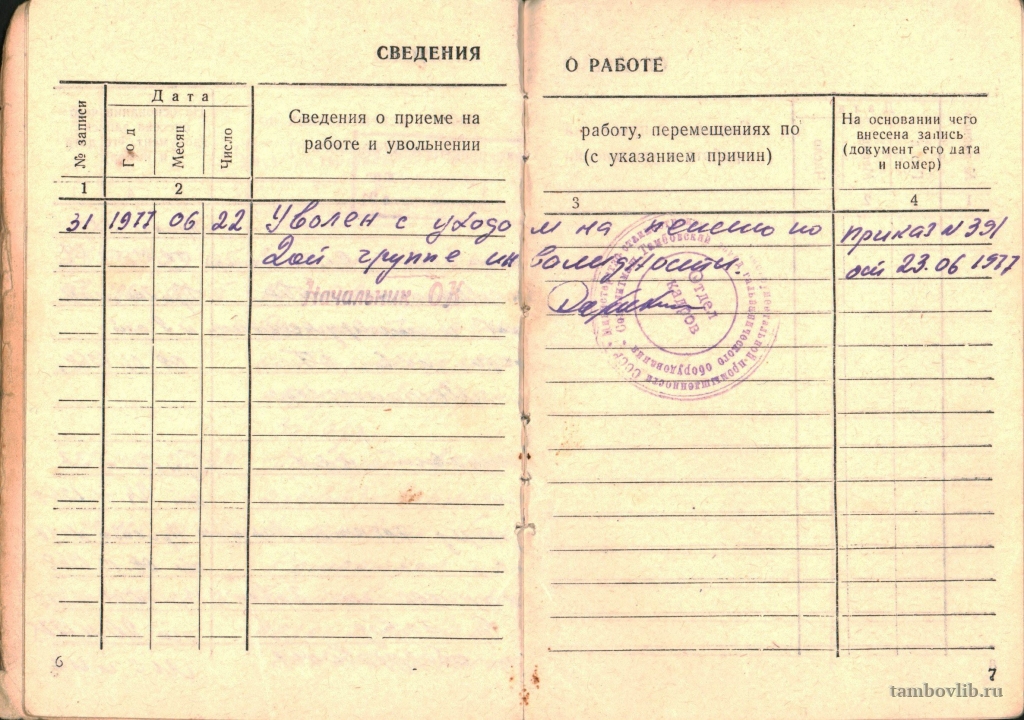 СВЕДЕНИЯ
О РАБОТЕ
№ записи
Дата
Год
Месяц
Число
Сведения о приеме на
работе и увольнении
работу, перемещениях по
(с указанием причин)
На основании чего
внесена запись
(документ его дата
и номер)
1
2
3
4
31 1977 06 22 Уволен с уходо
м на пенсию по
приказ N 391
2ой группе ин
валидности.
от 23.06 1977
Начальник ОК
Отдел
кадров
гальванического оборудования
промышленности СССР
Тамбовский
6
7
tambovlib.ru